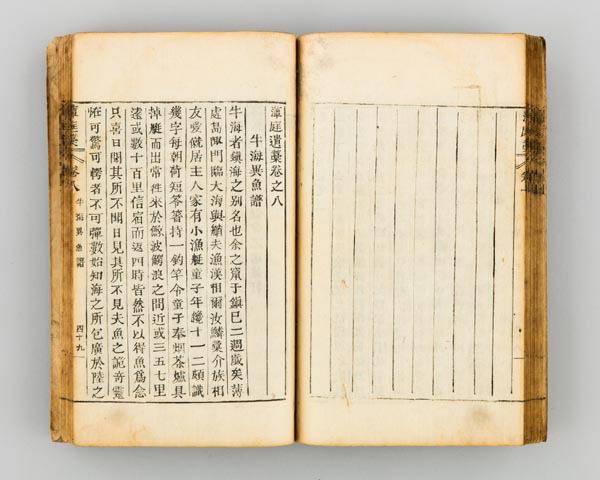 藫庭遺藁卷之八
牛海異魚譜
牛海者鎭海之別名也余之竄于鎭已二週歲矣薄
處島陬門臨大海與艄夫漁漢相爾汝鱗彙介族相
友愛僦居主人家有小漁艇童子年纔十一二頗識
幾字每朝荷短笭箵持一釣竿令童子奉烟茶爐具
掉艇而出常往來於鯨波鰐浪之間近或三五七里
遠或數十百里信宿而返四時皆然不以得魚爲念
只喜日聞其所不聞日見其所不見夫魚之詭奇靈
恠可驚可愕者不可殫數始知海之所包廣於陸之
藫庭藁 卷八 牛海異魚譜 四十九